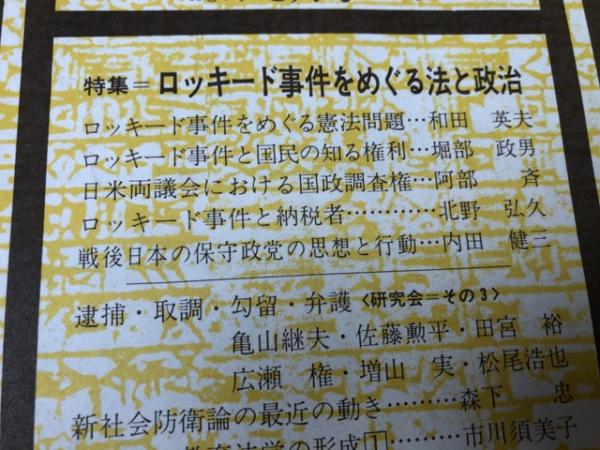 特集=ロッキード事件をめぐる法と政治
ロッキード事件をめぐる憲法問題…和田 英夫
ロッキード事件と国民の知る権利…堀部 政男
日米両議会における国政調査権…阿部 斉
ロッキード事件と納税者…………北野 弘久
戦後日本の保守政党の思想と行動…内田 健三
逮捕・取調・勾留・弁護〈研究会=その3〉
亀山継夫・佐藤勲平・田宮 裕
広瀬 権・増山 実・松尾浩也
新社会防衛論の最近の動き………森下 忠
教育法学の形成1………市川須美子